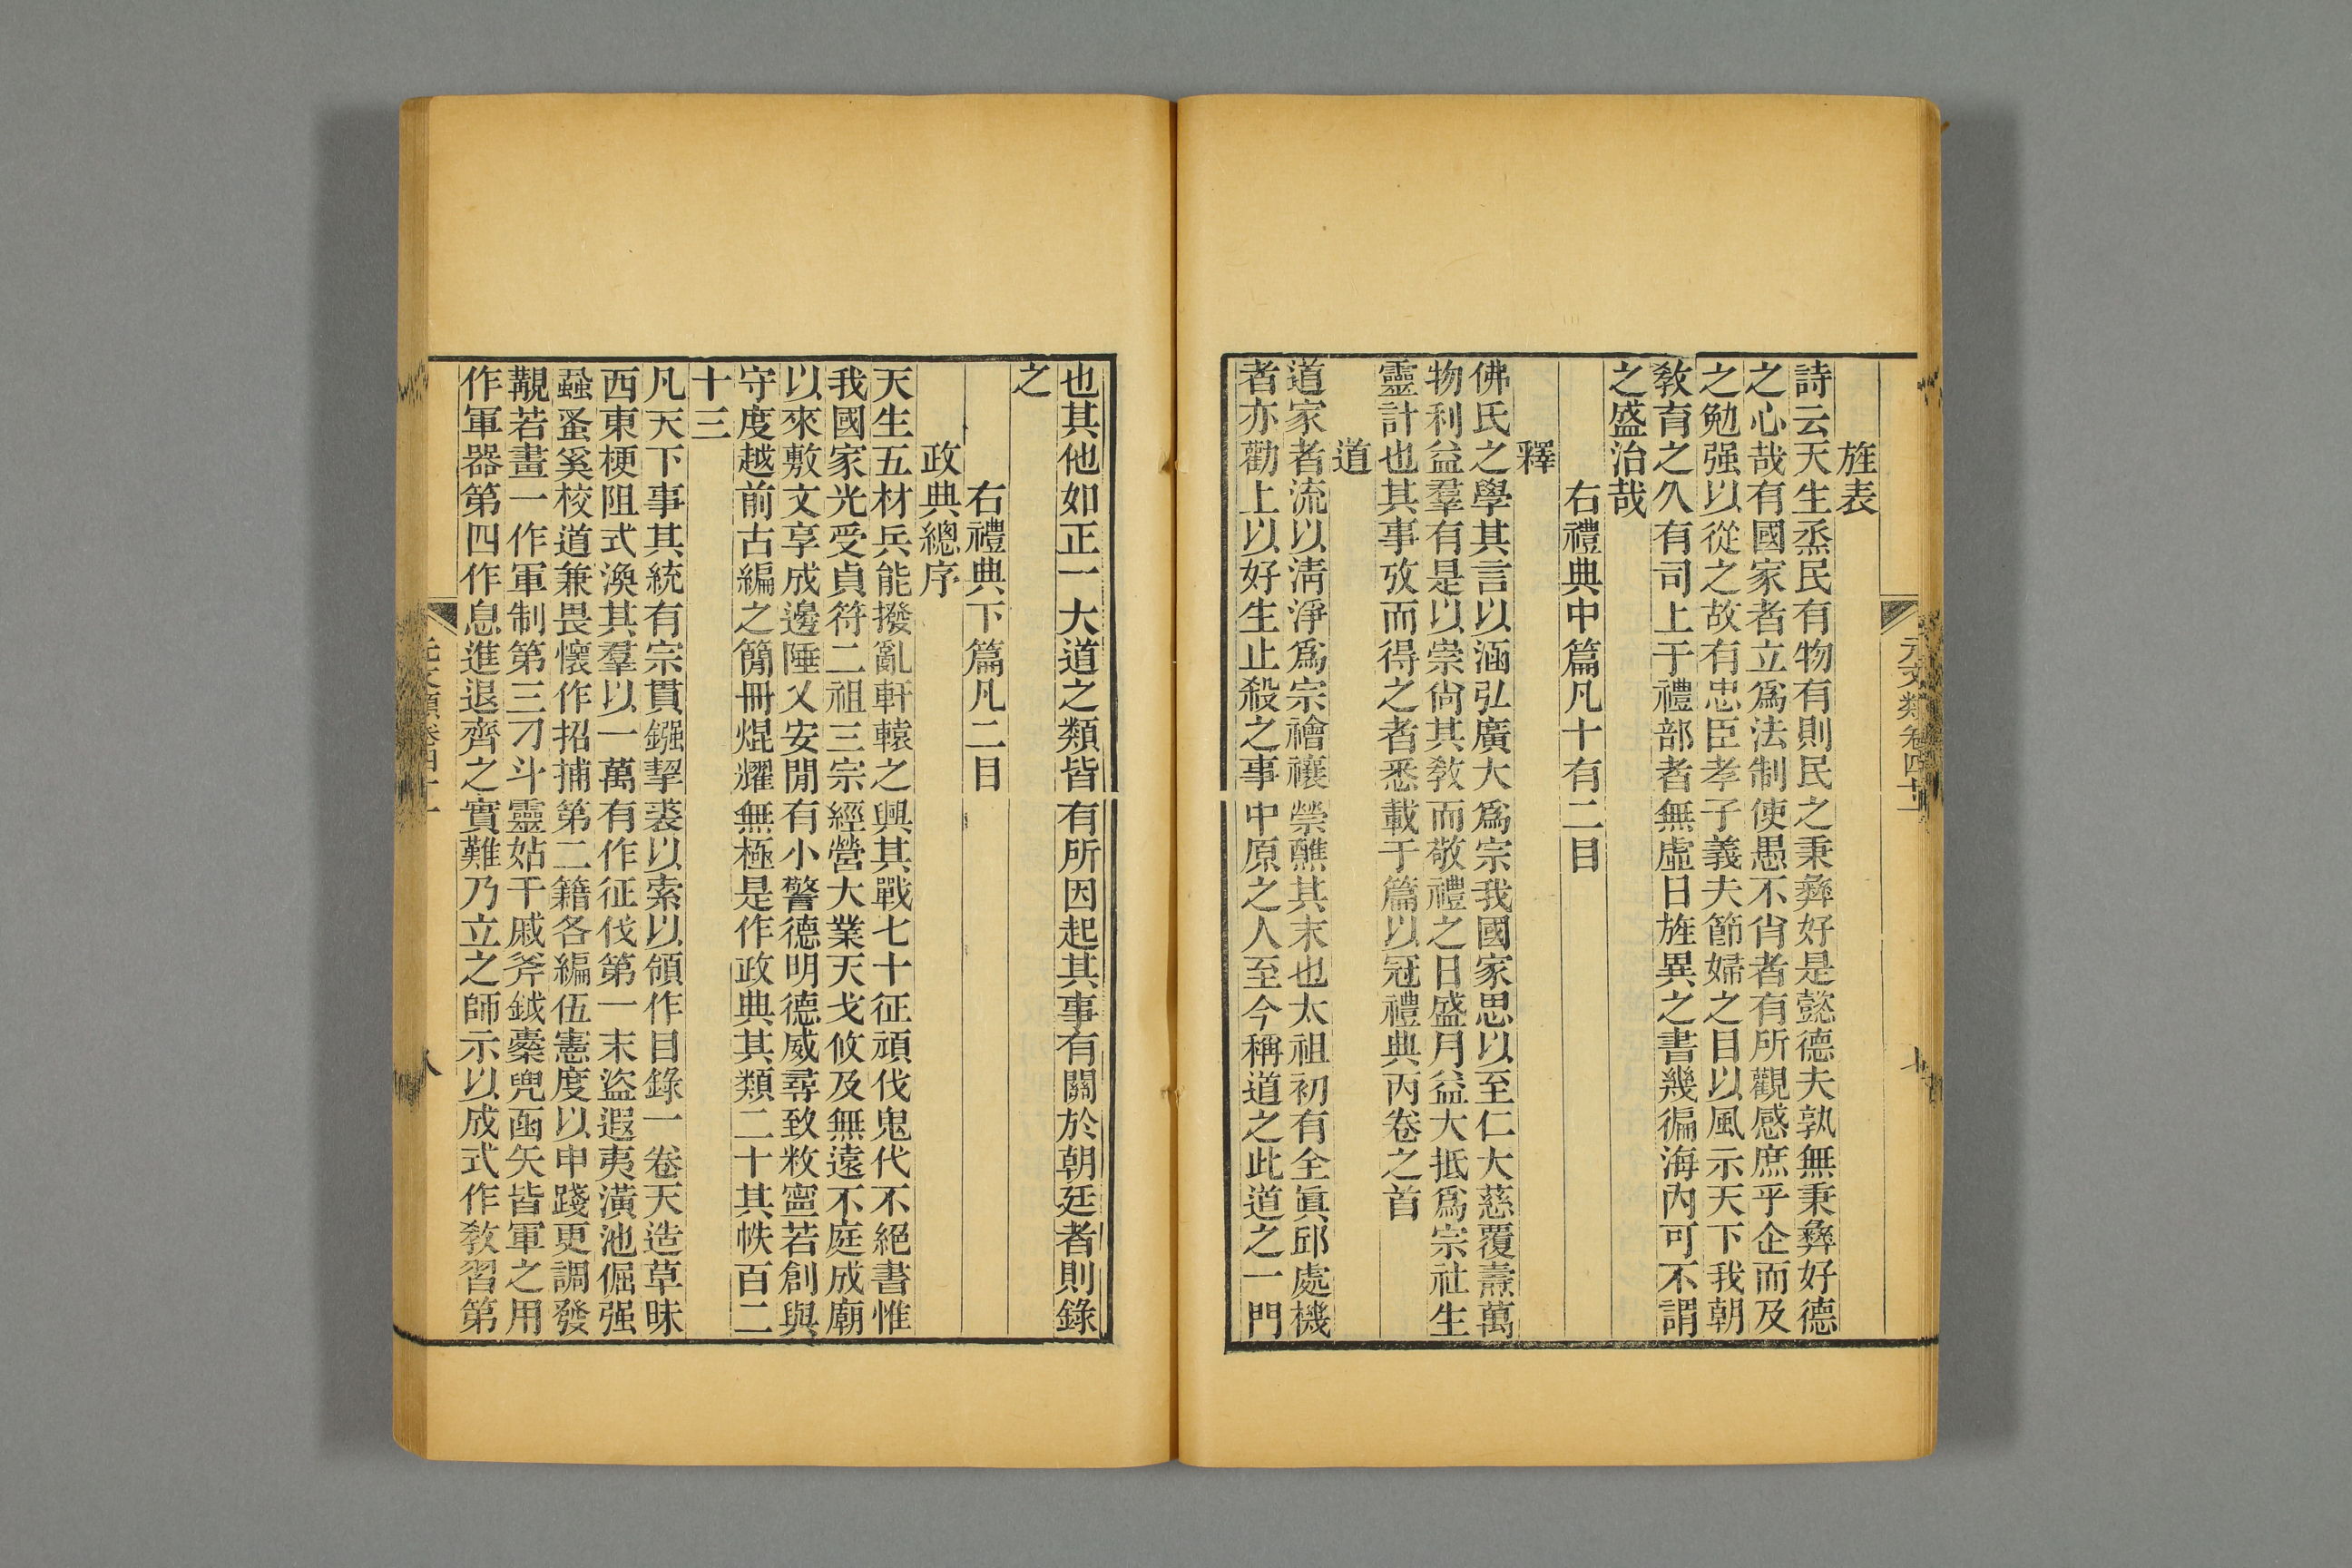 元文類卷四十一
七
旌表
詩云天生烝民有物有則民之秉彝好是懿德夫孰無秉彝好德
之心哉有國家者立爲法制使愚不肖者有所觀感庶乎企而及
之勉强以從之故有忠臣孝子義夫節婦之目以風示天下我朝
敎育之久有司上于禮部者無虛日旌異之書幾徧海內可不謂
之盛治哉
右禮典中篇凡十有二目
釋
佛氏之學其言以涵弘廣大爲宗我國家思以至仁大慈覆燾萬
物利益羣有是以崇尙其敎而敬禮之日盛月益大抵爲宗社生
靈計也其事攷而得之者悉載于篇以冠禮典丙卷之首
道
道家者流以淸淨爲宗禬禳禜醮其末也太祖初有全眞邱處機
者亦勸上以好生止殺之事中原之人至今稱道之此道之一門
也其他如正一大道之類皆有所因起其事有關於朝廷者則錄
之
右禮典下篇凡二目
政典總序
天生五材兵能撥亂軒轅之興其戰七十征頑伐鬼代不絕書惟
我國家光受貞符二祖三宗經營大業天戈攸及無遠不庭成廟
以來敷文享成邊陲乂安閒有小警德明德威尋致敉寧若創與
守度越前古編之簡冊焜耀無極是作政典其類二十其帙百二
十三
凡天下事其統有宗貫鏹挈裘以索以領作目錄一卷天造草昧
西東梗阻式渙其羣以一萬有作征伐第一末盜遐夷潢池倔强
蝨蚤奚校道兼畏懷作招捕第二籍各編伍憲度以申踐更調發
覯若畫一作軍制第三刀斗靈姑干戚斧鉞櫜兜函矢皆軍之用
作軍器第四作息進退齊之實難乃立之師示以成式作敎習第
元文類卷四十一
八